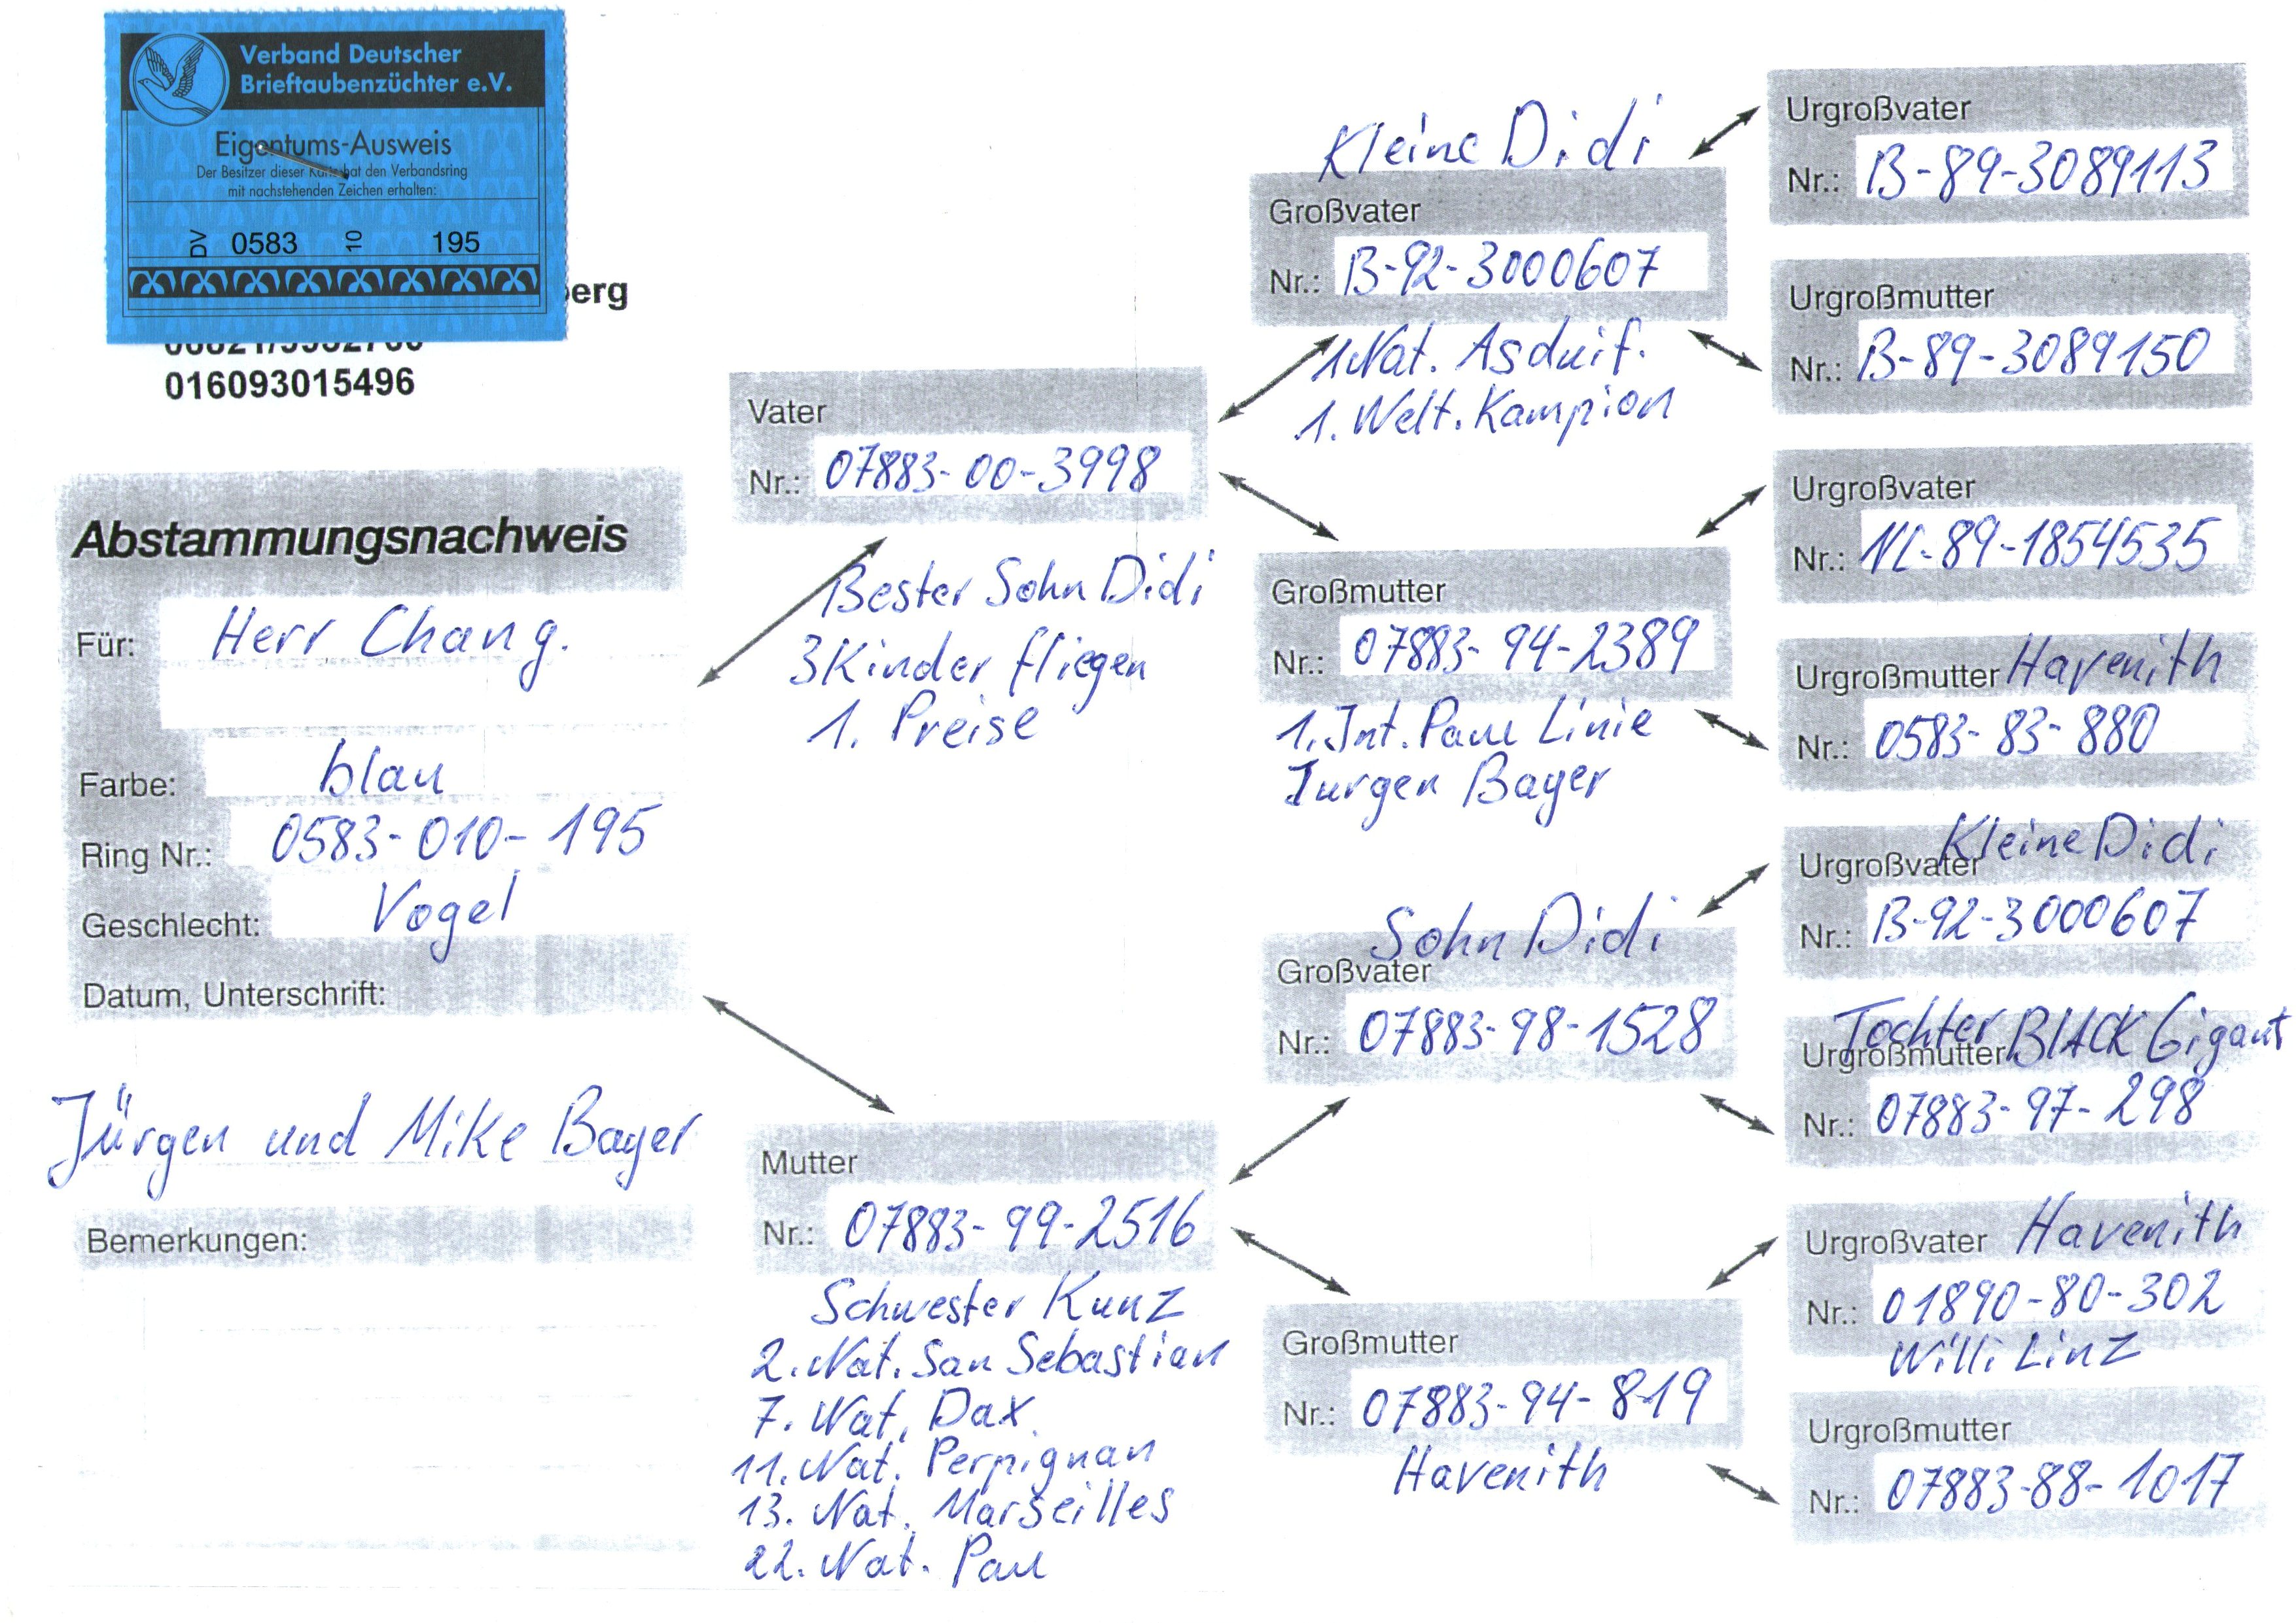 Verband Deutscher
Brieftaubenzüchter e.V.
Eigentums-Ausweis
Der Besitzer dieser Karte hat den Verbandsring
mit nachstehenden Zeichen erhalten:
DV 0583 10 195
erg
016093015496
Abstammungsnachweis
Für: Herr Chang.
Farbe: blau
Ring Nr.: 0583-010-195
Geschlecht: Vogel
Datum, Unterschrift:
Jürgen und Mike Bayer
Bemerkungen:
Vater
Nr.: 07883-00-3998
Bester Sohn Didi
3 Kinder fliegen
1. Preise
Mutter
Nr.: 07883-99-2516
Schwester Kunz
2. Nat. San Sebastian
7. Nat. Dax
11. Nat. Perpignan
13. Nat. Marseilles
22. Nat. Pau
Kleine Didi
Großvater
Nr.: B-92-3000607
1 Nat. Asduif.
1. Welt. Kampion
Großmutter
Nr.: 07883-94-2389
1. Int. Pau Linie
Jurgen Bayer
Sohn Didi
Großvater
Nr.: 07883-98-1528
Großmutter
Nr.: 07883-94-819
Havenith
Urgroßvater
Nr.: B-89-3089113
Urgroßmutter
Nr.: B-89-3089150
Urgroßvater
Nr.: NL-89-1854535
Urgroßmutter Havenith
Nr.: 0583-83-880
Kleine Didi
Urgroßvater
Nr.: B-92-3000607
Tochter BlACK Gigant
Urgroßmutter
Nr.: 07883-97-298
Urgroßvater Havenith
Nr.: 01890-80-302
Willi Linz
Urgroßmutter
Nr.: 07883-88-1017